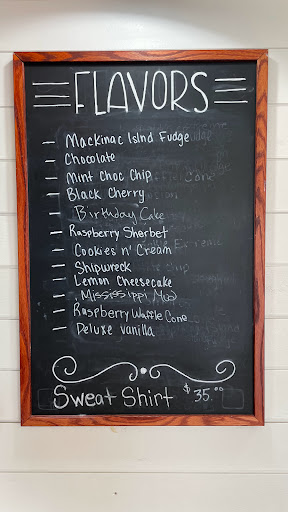 FLAVORS
- Mackinac Islnd Fudge
- Chocolate
- Mint Choc Chip
- Black Cherry
- Birthday Cake
- Raspberry Sherbet
- Cookies n' Cream
- Shipwreck
- Lemon Cheesecake
- Mississippi Mud
- Raspberry Waffle Cone
- Deluxe Vanilla
Sweat Shirt $35.00